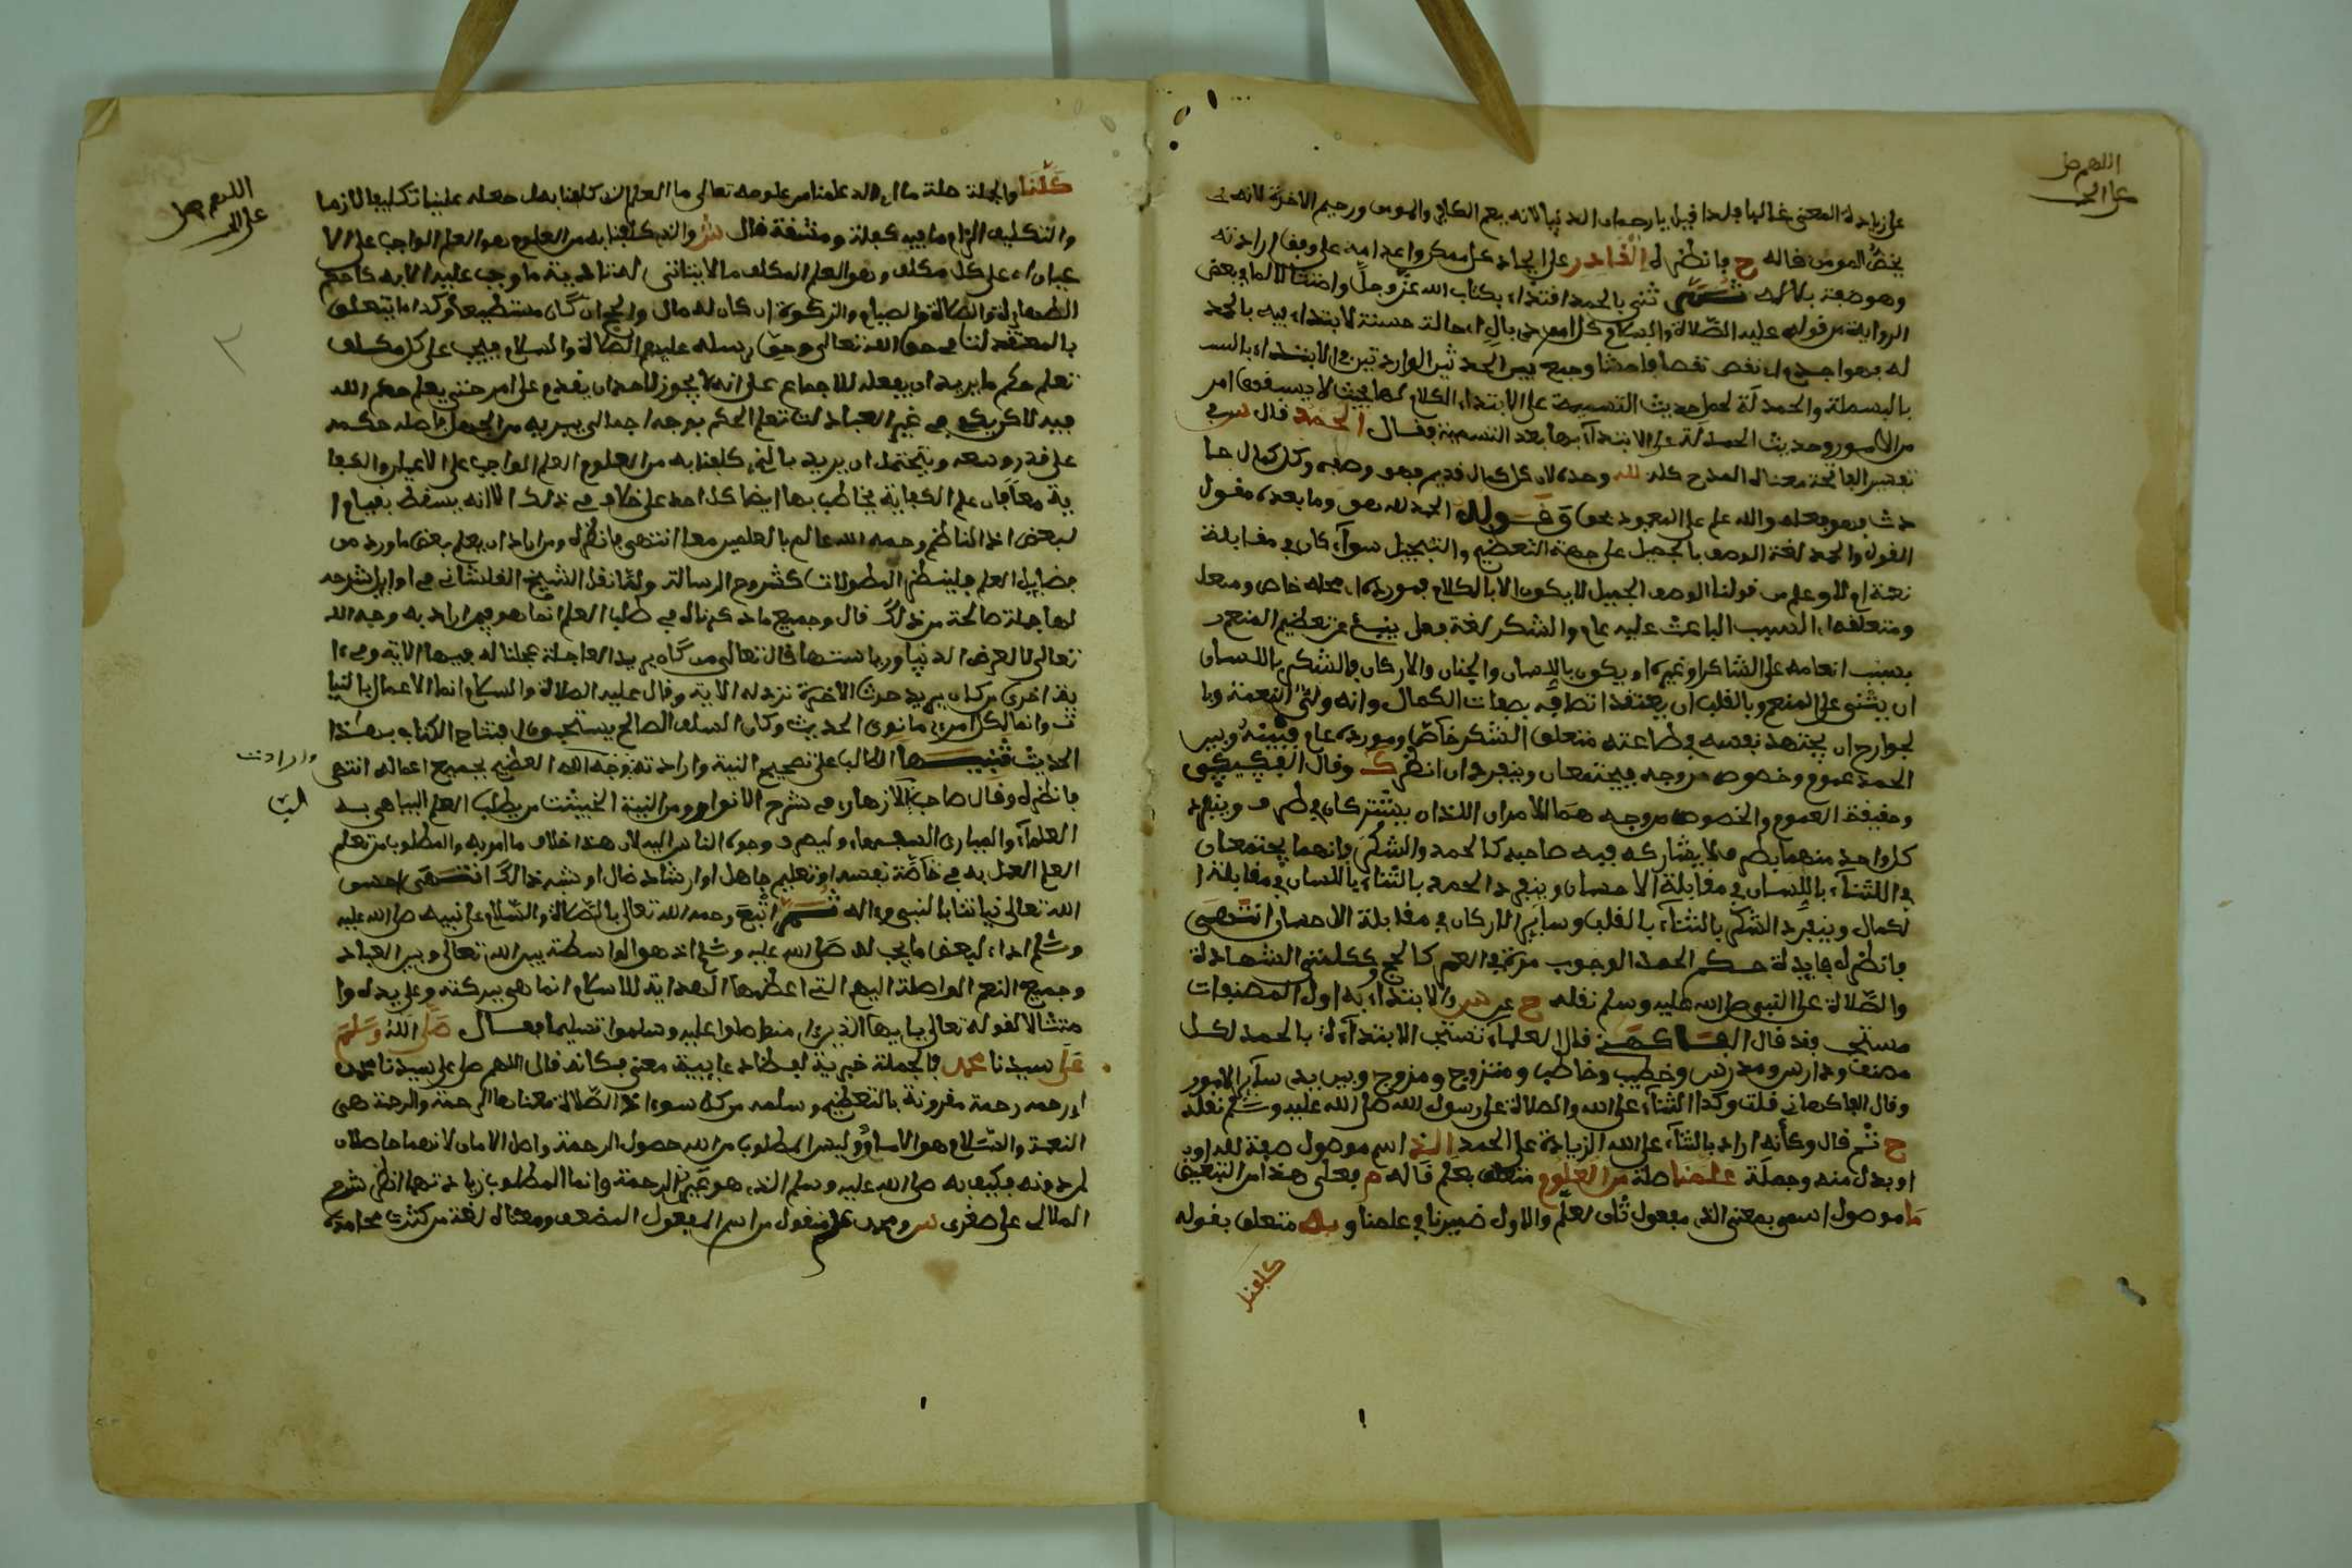 اللهم صل
على الحبيب
على زيادة المعنى غالبا ولذا قيل يا رحمان الدنيا لانه يعم الكافر والمومن ورحيم الاخرة لانه
يخص المومن قاله ح وانظره القادر على ايجاد كل ممكن واعدامه على وفق ارادته
وهو صفة ثنى بالحمد اقتداء بكتاب الله عز وجل وامتثالا لما في بعض
الرواية من قوله عليه الصلاة والسلام كل امر ذي بال اي حالة حسنة لا يبتدا فيه بالحمد
له فهو اجذم اي ناقص نقصا فاحشا وجمع بين الحديثين الواردتين في الابتداء بالبسـ
بالبسملة والحمدلة لحمل حديث التسمية على الابتداء الكلام بها بحيث لا يسبقها امر
من الامور وحديث الحمدلة على الابتداء بها بعد التسمية فقال الحمد قال س في
تفسير الفاتحة معناه المدح كله لله وحده لان كل كمال قديم فهو وصفه وكل كمال حا
دث فهو فعله والله علم على المعبود بحق وقوله الحمد لله هو وما بعده مقول
القول والحمد لغة الوصف بالجميل على جهة التعظيم والتبجيل سواء كان في مقابلة
نعمة ام لا وعلم من قولنا الوصف الجميل لا يكون الا بالكلام فمورده اي محله خاص ومتعلـ
ومتعلقه اي السبب الباعث عليه عام والشكر لغة فعل ينبئ عن تعظيم المنعم
بسبب انعامه على الشاكر او غيره او يكون باللسان والجنان والاركان فالشكر باللسان
ان يثنى على المنعم وبالقلب ان يعتقد اتصافه بصفات الكمال وانه ولي النعمة وبا
لجوارح ان يجتهد نفسه في طاعته متعلق الشكر خاص ومورده عام فبينه وبين
الحمد عموم وخصوص من وجه فيجتمعان وينفردان انظر ك وقال الفيكيكي
وحقيقة العموم والخصوص من وجه هما الامران اللذان يشتركان في طرف وينفرد
كل واحد منهما بطرف لا يشاركه فيه صاحبه كالحمد والشكر فانهما يجتمعان
في الثناء باللسان في مقابلة الاحسان وينفرد الحمد بالثناء باللسان في مقابلة ا
لكمال وينفرد الشكر بالثناء بالقلب وساير الاركان في مقابلة الاحسان انتهى
وانظره فايدة حكم الحمد الوجوب مرة في العمر كالحج وككلمتي الشهادة
والصلاة على النبي صلى الله عليه وسلم نقله ح عن س والابتداء به اول المصنفات
مستحب وقد قال الفاكهني قال العلماء تستحب الابتداء بالحمد لكل
مصنف ودارس ومدرس وخطيب وخاطب ومتزوج ومزوج وبين يدي ساير الامور
وقال الفاكهاني قلت وكذا الثناء على الله والصلاة على رسول الله صلى الله عليه وسلم نقله
ح ثم قال وكانه اراد بالثناء على الله الزيادة على الحمد الذي اسم موصول صفة لله او
او بدل منه وجملة علمنا صلة من العلوم متعلق بعلم قاله م فعلى هذا من للتبعيض
ما موصول اسمي بمعنى الذي مفعول ثان لعلم والاول ضمير نا في علمنا وبه متعلق بقوله
كلفنا
اللهم صل
على
كلفنا والجملة صلة ما اي الذي علمنا من علومه تعالى ما العلم الذي كلفنا به اي جعله علينا تكليفا لازما
والتكليف الزام ما فيه كلفة ومشقة قال س والذي كلفنا به من العلوم هو العلم الواجب على الا
عيان اي على كل مكلف وهو العلم المكلف ما لا يتاتى له تادية ما وجب عليه الا به كاحكم
الطهارة والصلاة والصيام والزكوة ان كان له مال والحج ان كان مستطيعا وكذا ما يتعلق
بالمعتقد لنا في حق الله تعالى وحق رسله عليهم الصلاة والسلام فيجب على كل مكلف
تعلم حكم ما يريد ان يفعله للاجماع على انه لا يجوز لاحد ان يقدم على امر حتى يعلم حكم الله
فيه لاكن يكفي في غير العباد ات تعلم الحكم بوجه اجمالي يبريه من الجهل باصل حكمه
على قدر وسعه ويحتمل ان يريد بالذي كلفنا به من العلوم العلم الواجب على الاعيان والكفا
ية معا فان علم الكفاية يخاطب بها ايضا كل احد على خلاف في ذلك الا انه يسقط بقيام ا
لبعض اذ الناظم رحمه الله عالم بالعلمين معا انتهى وانظره ومن اراد ان يعلم بعض ما ورد من
فضايل العلم فلينظر المطولات كشروح الرسالة ولقد نقل الشيخ القلشاني في اوايل شرحه
لها جملة صالحة من ذلك قال وجميع ما ذكرناه في طلب العلم انما هو فيمن اراد به وجه الله
تعالى لا لعرض الدنيا ورياستها قال تعالى من كان يريد العاجلة عجلنا له فيها الاية وفي ا
ية اخرى من كان يريد حرث الاخرة نزد له الاية وقال عليه الصلاة والسلام انما الاعمال بالنيا
ت وانما لكل امرئ ما نوى الحديث وكان السلف الصالح يستحبون افتتاح الكتاب بهذا
الحديث تنبيها الطالب على تصحيح النية وارادته وجه الله العظيم بجميع اعماله انتهى
وارادت
فانظره وقال صاحب الازهار في شرح الانوار ومن النية الخبيثة من يطلب العلم ليباهي به
العلماء ويماري السفهاء وليصرف وجوه الناس اليه لان هذا خلاف ما امر به والمطلوب من تعلم
العلم العمل به في خاصة نفسه او تعليم جاهل او ارشاد ضال او شبه ذالك انتهى احسن
الله تعالى نياتنا بالنبي واله ثم اتبع رحمه الله تعالى بالصلاة والسلام على نبيه صلى الله عليه
وسلم اداء لبعض ما يجب له صلى الله عليه وسلم اذ هو الواسطة بين الله تعالى وبين العباد
وجميع النعم الواصلة اليهم التي اعظمها الهداية للاسلام انما هي ببركته وعلى يده وا
متثالا لقوله تعالى يايها الذين امنوا صلوا عليه وسلموا تسليما فقال صلى الله وسلم
على سيدنا محمد فالجملة خبرية لفظا دعايية معنى فكانه قال اللهم صل على سيدنا محمد
اي رحمه رحمة مقرونة بالتعظيم وسلمه من كل سوء اذ الصلاة معناها الرحمة والرحمة هي
النعمة والسلام هو الامان وليس المطلوب من الله حصول الرحمة واصل الامان لانهما حاصلان
لمن دونه فكيف به صلى الله عليه وسلم الذي هو عين الرحمة وانما المطلوب زيادتهما انظر شرح
الملالي على صغرى س ومحمد علم منقول من اسم المفعول المضعف ومعناه لغة من كثرت محامده